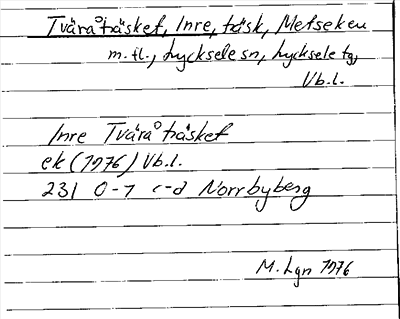 Tväråträsket, Inre, träsk, Metseken
m.fl., Lycksele sn, Lycksele tg,
Vb.l.
Inre Tväråträsket
ek (1976) Vb.l.
231 0-1 c-d Norrbyberg
M. Lgn 1976